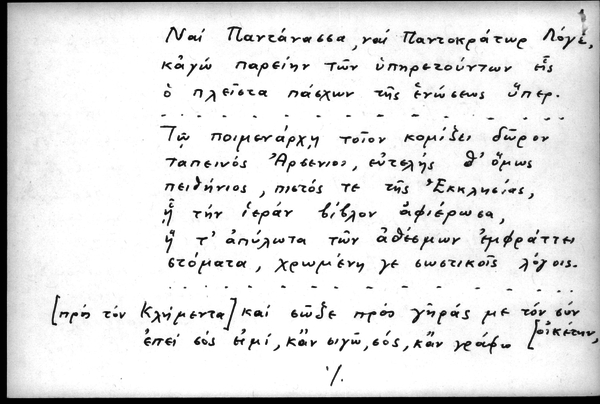 Ναί Παντάνασσα, ναί Παντοκράτωρ Λόγε,
κἀγώ παρείην τῶν ὑπηρετούντων εἷς
ὁ πλεῖστα πάσχων τῆς ἑνώσεως ὕπερ.
Τῷ ποιμενάρχῃ τοῖον κομίζει δῶρον
ταπεινός Ἀρσένιος, εὐτελής θ' ὅμως
πειθήνιος, πιστός τε τῆς Ἐκκλησίας,
ᾗ τήν ἱεράν βίβλον ἀφιέρωσα,
ἥ τ' ἀπύλωτα τῶν ἀθέσμων ἐμφράττει
στόματα, χρωμένη γε σωστικοῖς λόγοις.
[πρός τόν Κλήμεντα] καί σῶζε πρός γῆράς με τόν σόν
[οἰκέτην,
ἐπεί σός εἰμί, κἄν σιγῶ, σός, κἄν γράφω
·/.